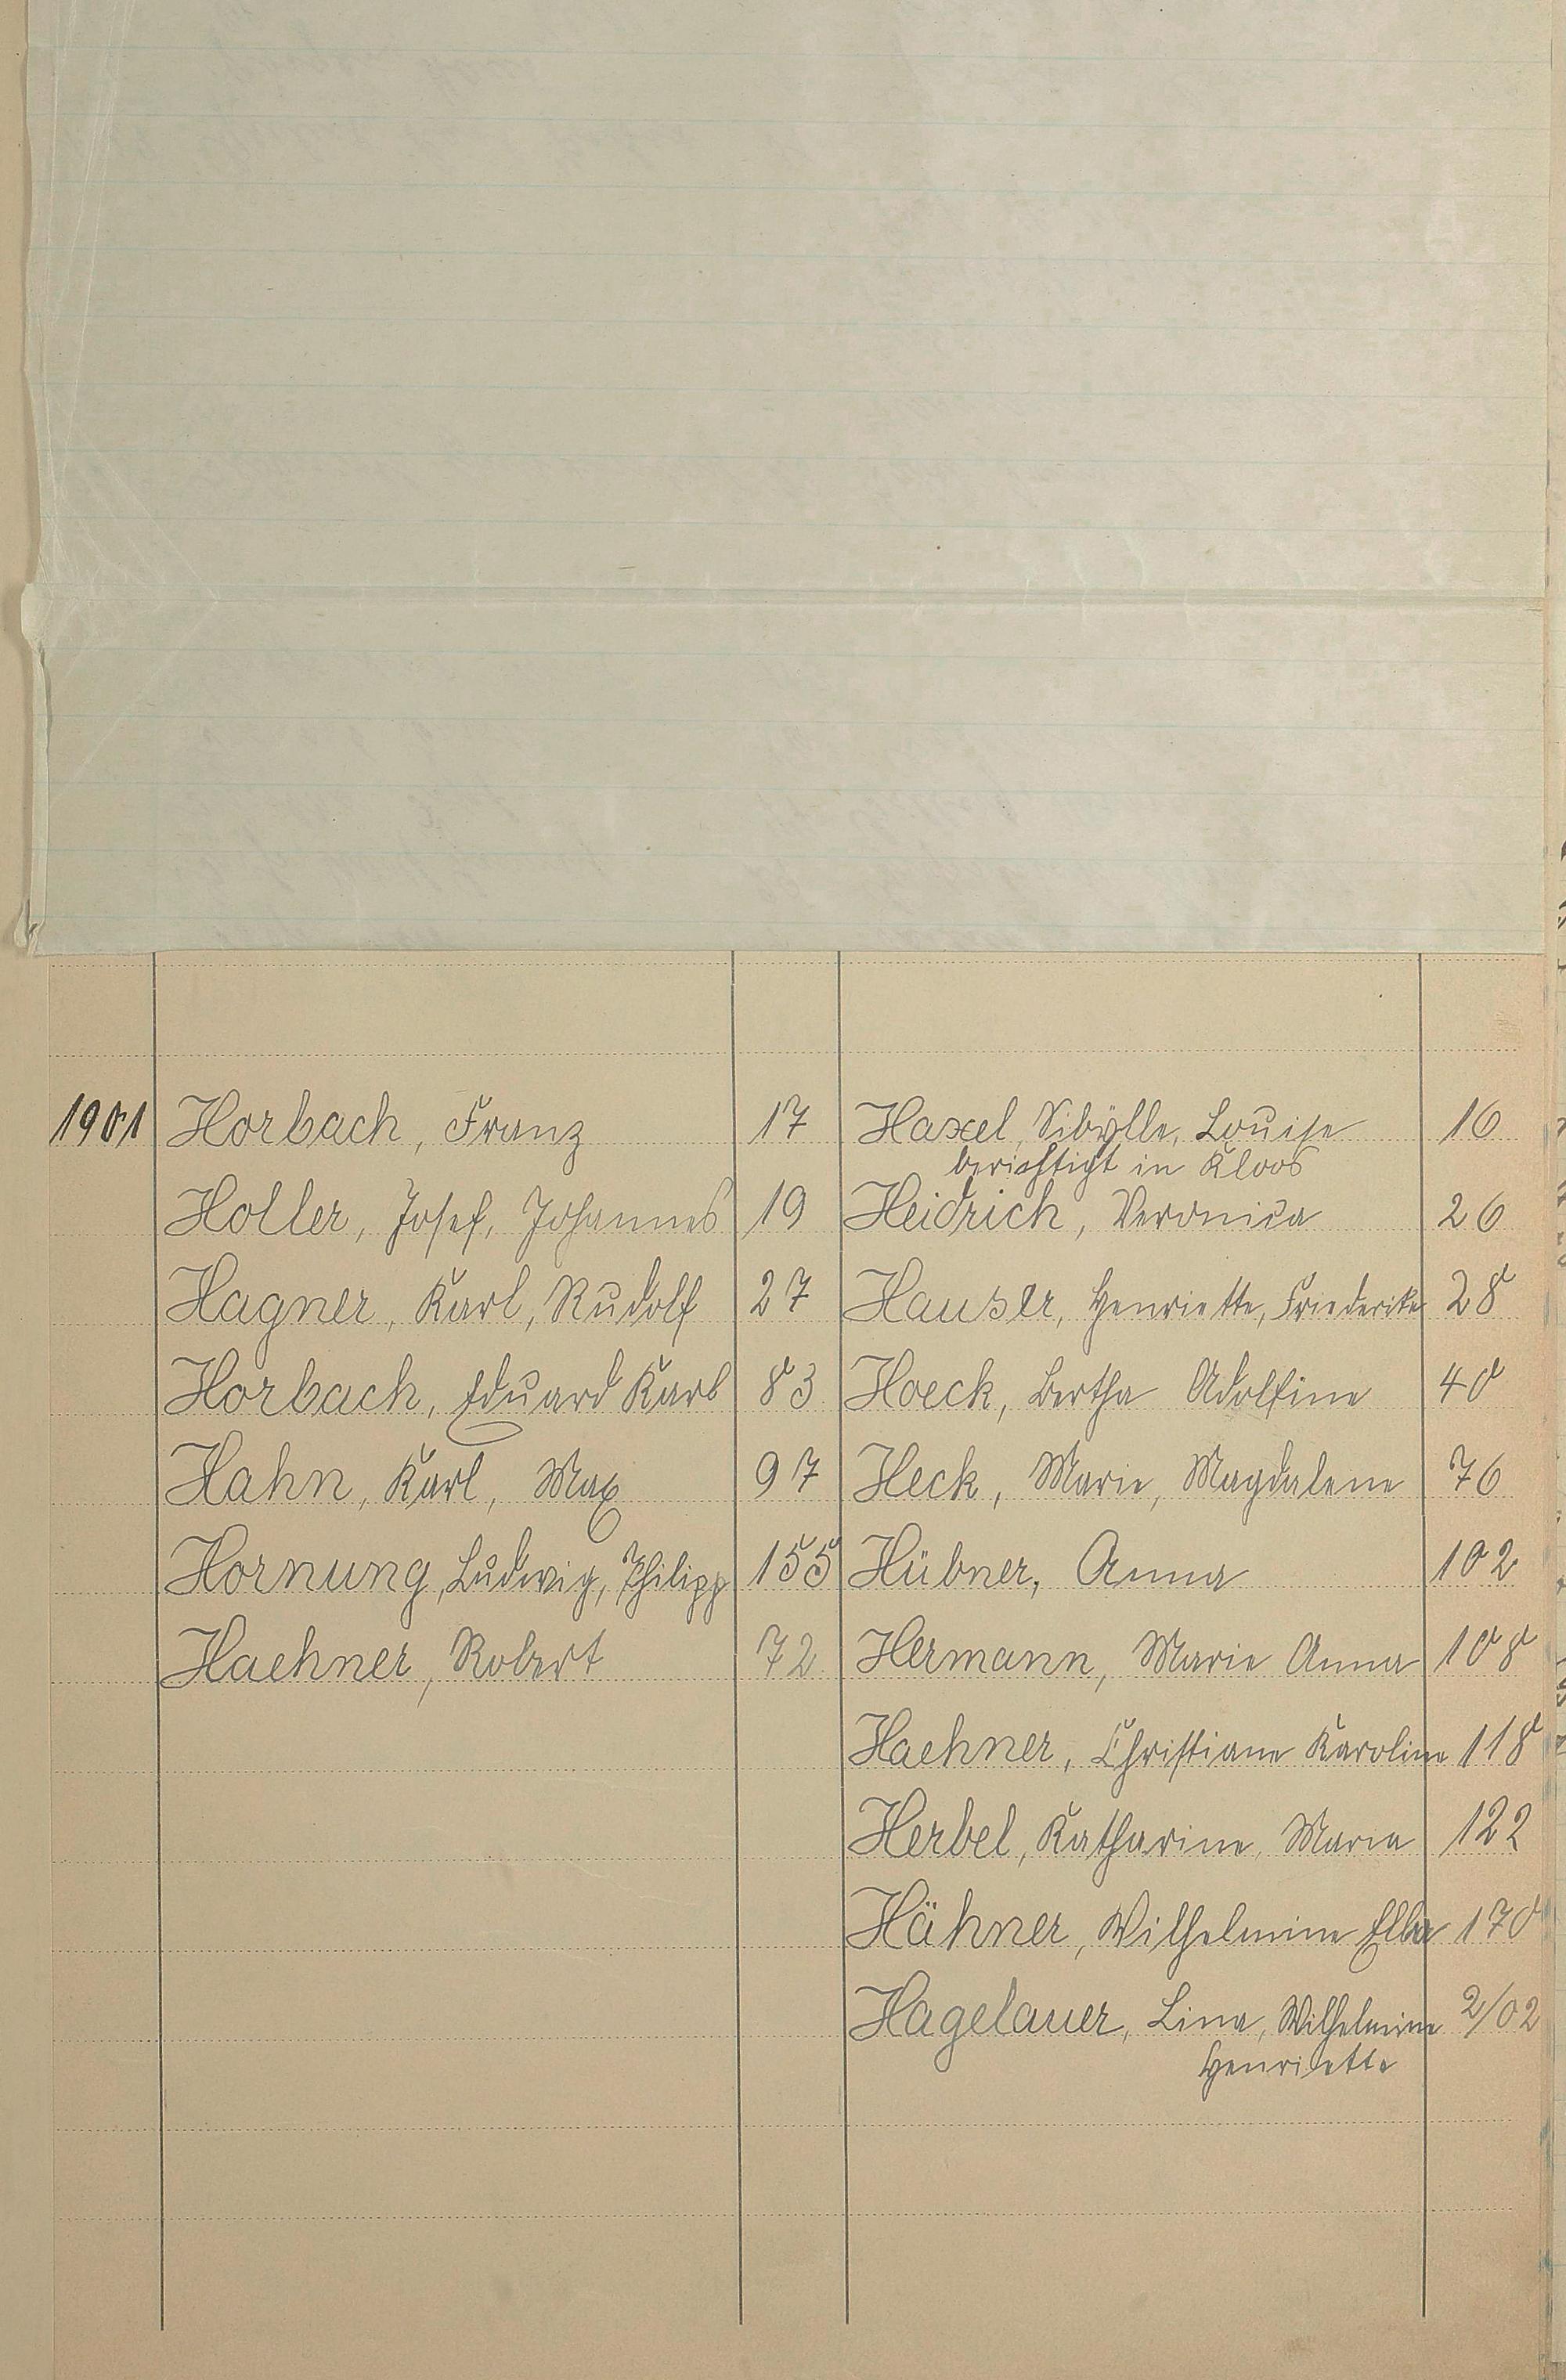 1901 Horbach, Franz 17 Haxel, Sibylle, Louise 16
berichtigt in Kloos
Holler, Josef, Johannes 19 Heidrich, Veronica 26
Hagner, Karl, Rudolf 27 Hauser, Henriette, Friederike 28
Horbach, Eduard Karl 83 Hoeck, Bertha Adolfine 40
Hahn, Karl, Max 97 Heck, Marie, Magdalene 76
Hornung, Ludwig, Philipp 155 Hübner, Anna 102
Haehner, Robert 72 Hermann, Marie Anna 108
Haehner, Christiane Karoline 118
Herbel, Katharine, Maria 122
Hähner, Wilhelmine Ella 170
Hagelauer, Lina, Wilhelmine 2/02
Henriette